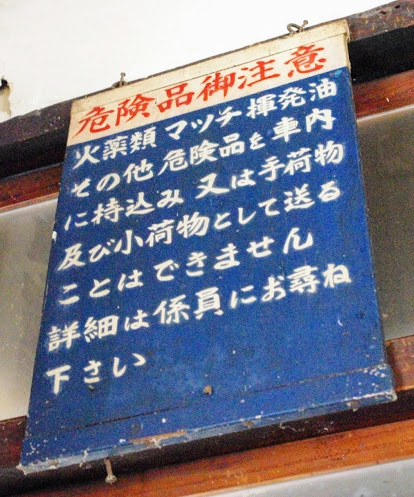 危険品御注意
火薬類 マッチ 揮発油
その他 危険品を車内
に持込み 又は手荷物
及び小荷物として送る
ことはできません
詳細は係員にお尋ね
下さい